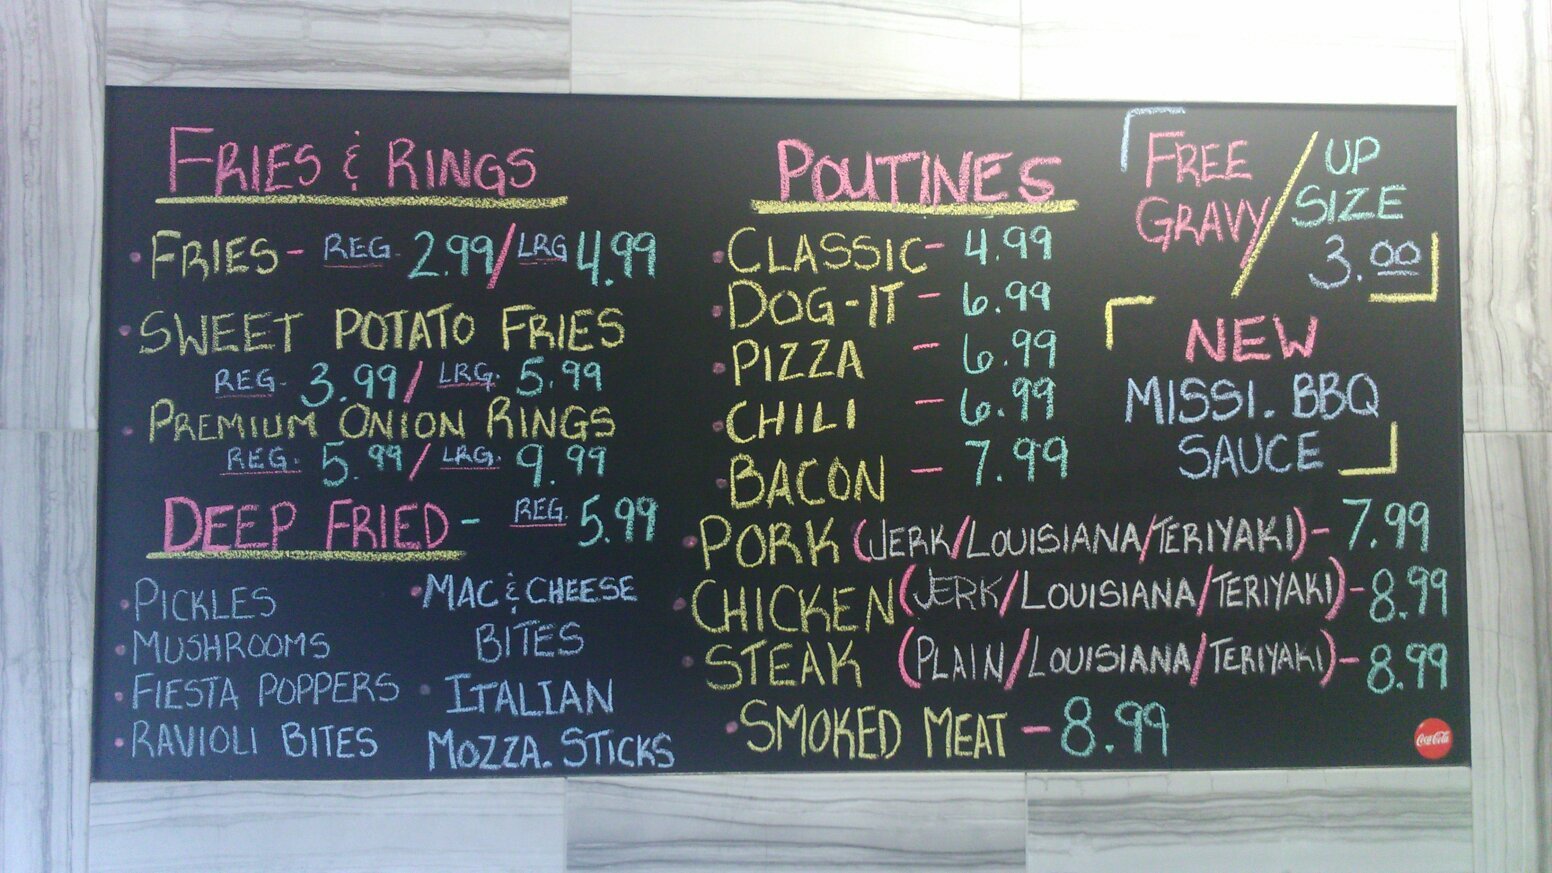 FRIES & RINGS
• FRIES - REG. 2.99/LRG 4.99
• SWEET POTATO FRIES
REG. 3.99/ LRG. 5.99
• PREMIUM ONION RINGS
REG. 5.99/ LRG. 9.99
DEEP FRIED - REG. 5.99
• PICKLES
• MUSHROOMS
• FIESTA POPPERS
• RAVIOLI BITES
• MAC & CHEESE
BITES
• ITALIAN
MOZZA. STICKS
POUTINES
• CLASSIC - 4.99
• DOG-IT - 6.99
• PIZZA - 6.99
• CHILI - 6.99
• BACON - 7.99
• PORK (JERK/LOUISIANA/TERIYAKI) - 7.99
• CHICKEN (JERK/LOUISIANA/TERIYAKI) - 8.99
• STEAK (PLAIN/LOUISIANA/TERIYAKI) - 8.99
• SMOKED MEAT - 8.99
FREE
GRAVY/
UP
SIZE
3.00
NEW
MISSI. BBQ
SAUCE
Coca-Cola